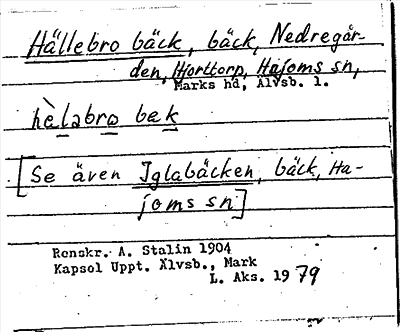 Hällebro bäck, bäck, Nedregår-
den, Hjorttorp, Hajoms sn,
Marks hd, Älvsb. l.
hèlabro bæk
[Se även Iglabäcken, bäck, Ha-
joms sn]
Renskr. A. Stalin 1904
Kapsol Uppt. Älvsb., Mark
L. Aks. 1979